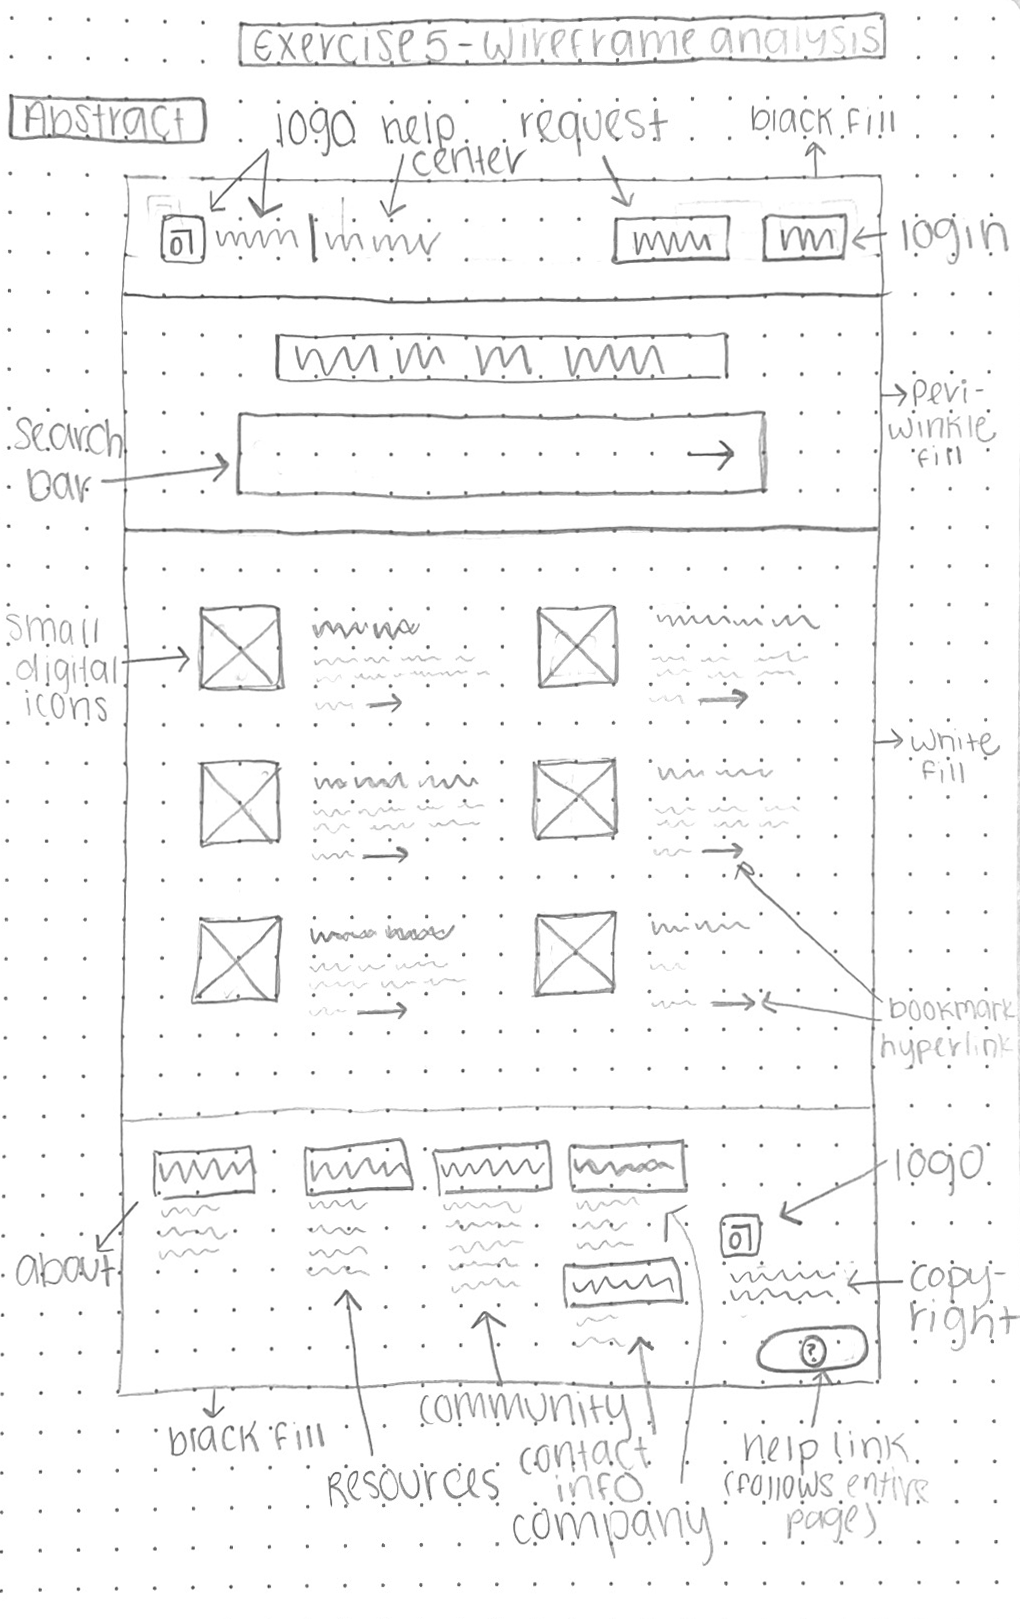 Exercise 5 - Wireframe analysis
Abstract
logo
help
center
request
black fill
login
peri-
winkle
fill
search
bar
small
digital
icons
white
fill
bookmark
hyperlink
logo
about
copy-
right
?
black fill
Resources
community
contact
info
company
help link
(follows entire
page)